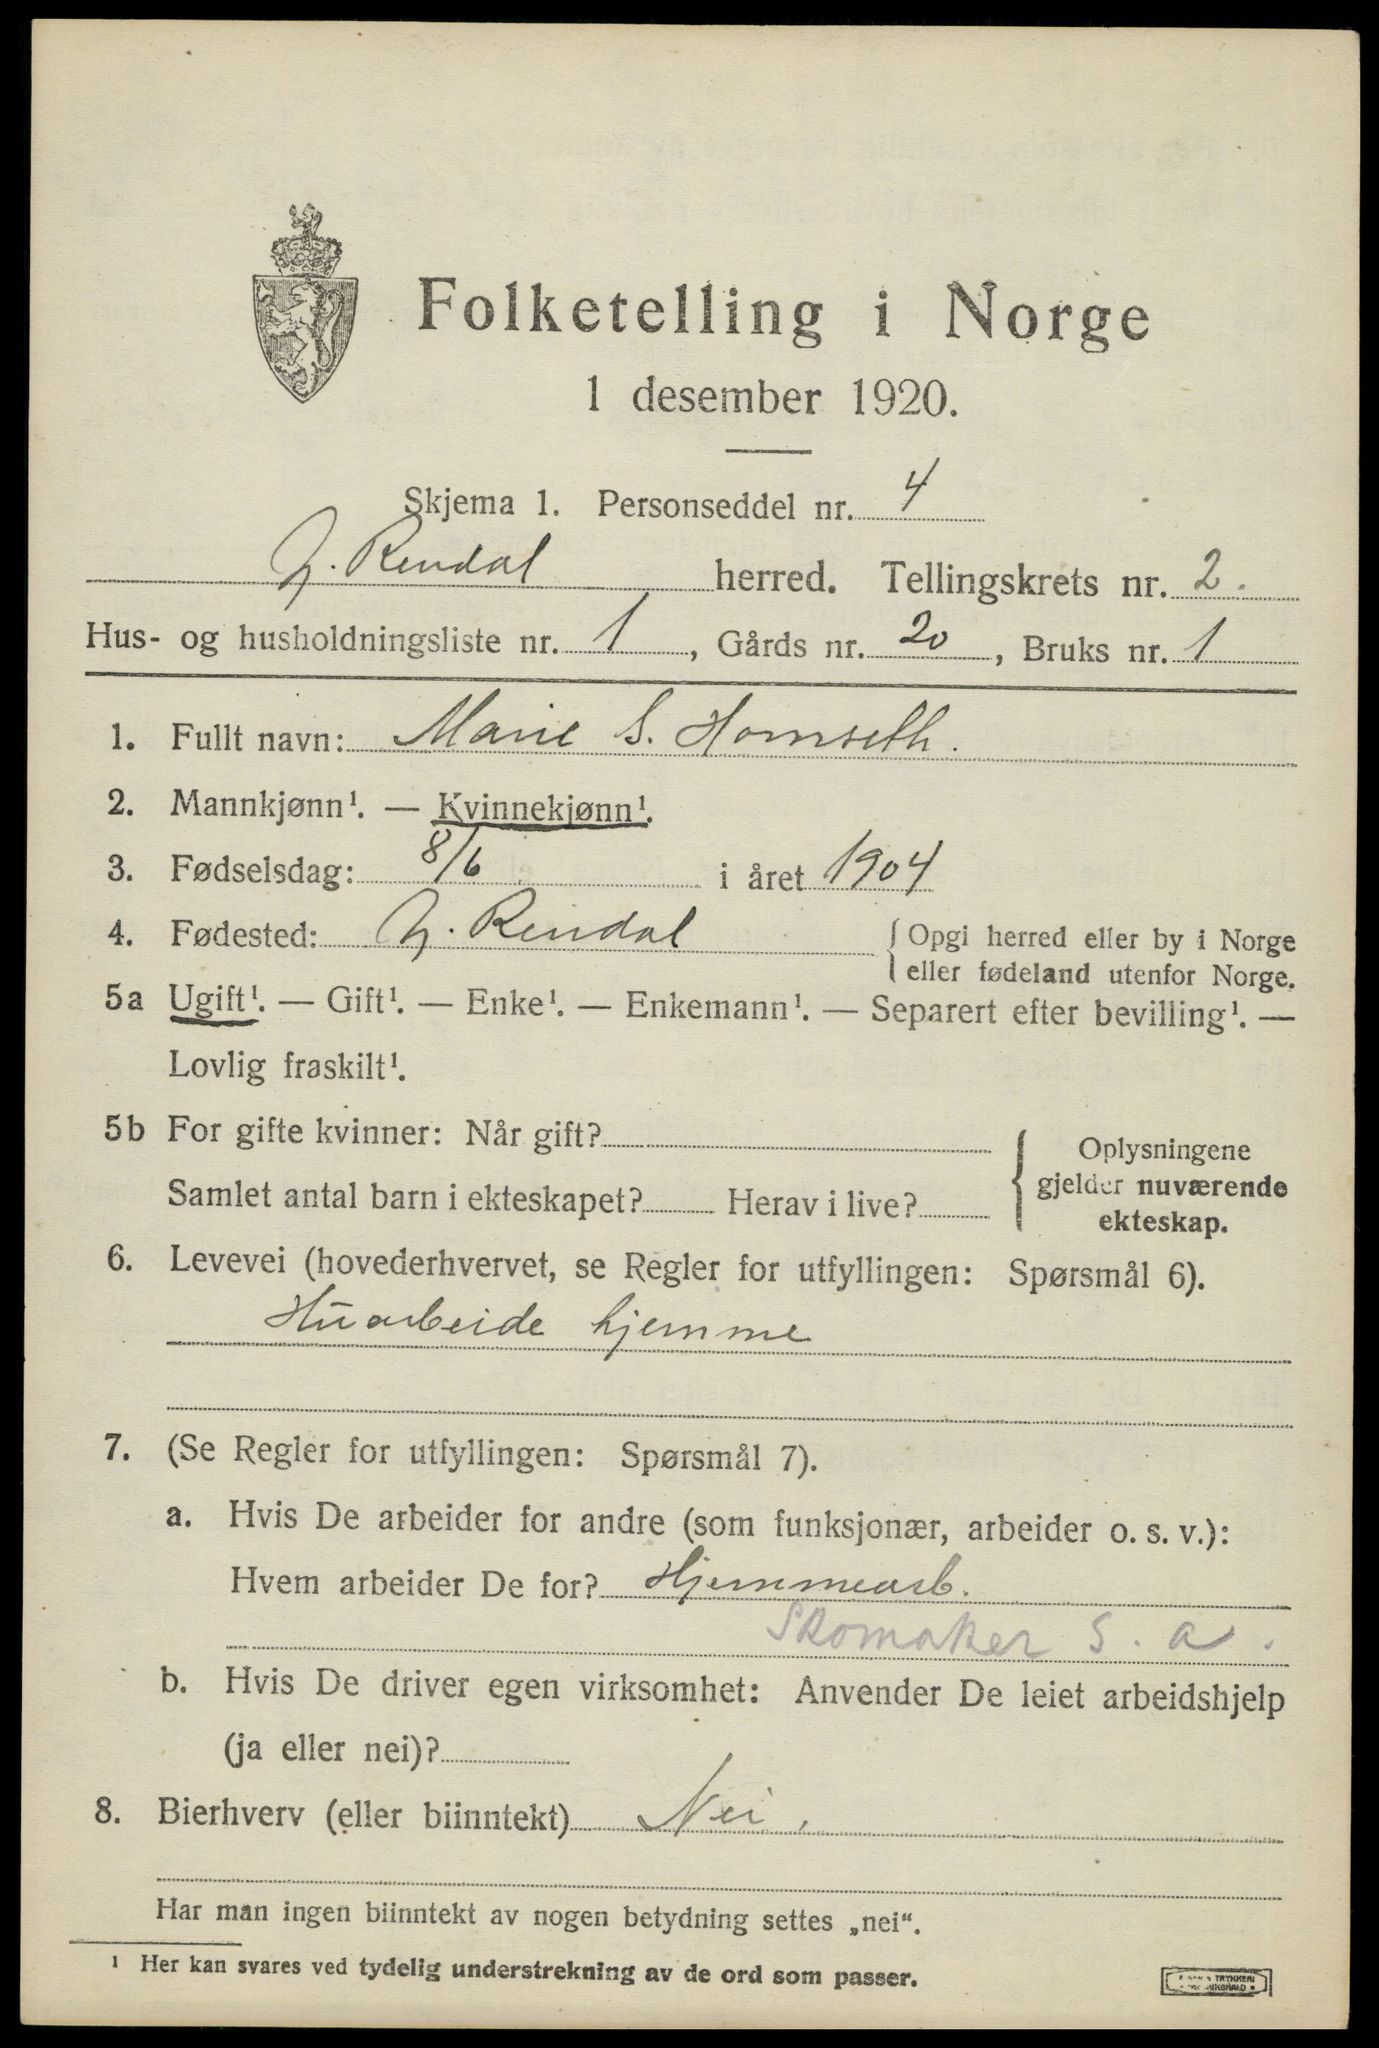 Folketelling i Norge
1 desember 1920.
Skjema 1. Personseddel nr. 4
Y. Rendal herred. Tellingskrets nr. 2.
Hus- og husholdningsliste nr. 1, Gårds nr. 20, Bruks nr. 1
1. Fullt navn: Marie S. Homseth.
2. Mannkjønn¹. — Kvinnekjønn¹.
3. Fødselsdag: 8/6 i året 1904
4. Fødested: Y. Rendal { Opgi herred eller by i Norge
eller fødeland utenfor Norge.
5a Ugift¹. — Gift¹. — Enke¹. — Enkemann¹. — Separert efter bevilling¹. —
Lovlig fraskilt¹.
5b For gifte kvinner: Når gift?
Samlet antal barn i ekteskapet? Herav i live?
{ Oplysningene
gjelder nuværende
ekteskap.
6. Levevei (hovederhvervet, se Regler for utfyllingen: Spørsmål 6).
Huarbeide hjemme
7. (Se Regler for utfyllingen: Spørsmål 7).
a. Hvis De arbeider for andre (som funksjonær, arbeider o. s. v.):
Hvem arbeider De for? Hjemmearb.
Skomaker S. a.
b. Hvis De driver egen virksomhet: Anvender De leiet arbeidshjelp
(ja eller nei)?
8. Bierhverv (eller biinntekt) Nei.
Har man ingen biinntekt av nogen betydning settes „nei“.
¹ Her kan svares ved tydelig understrekning av de ord som passer.